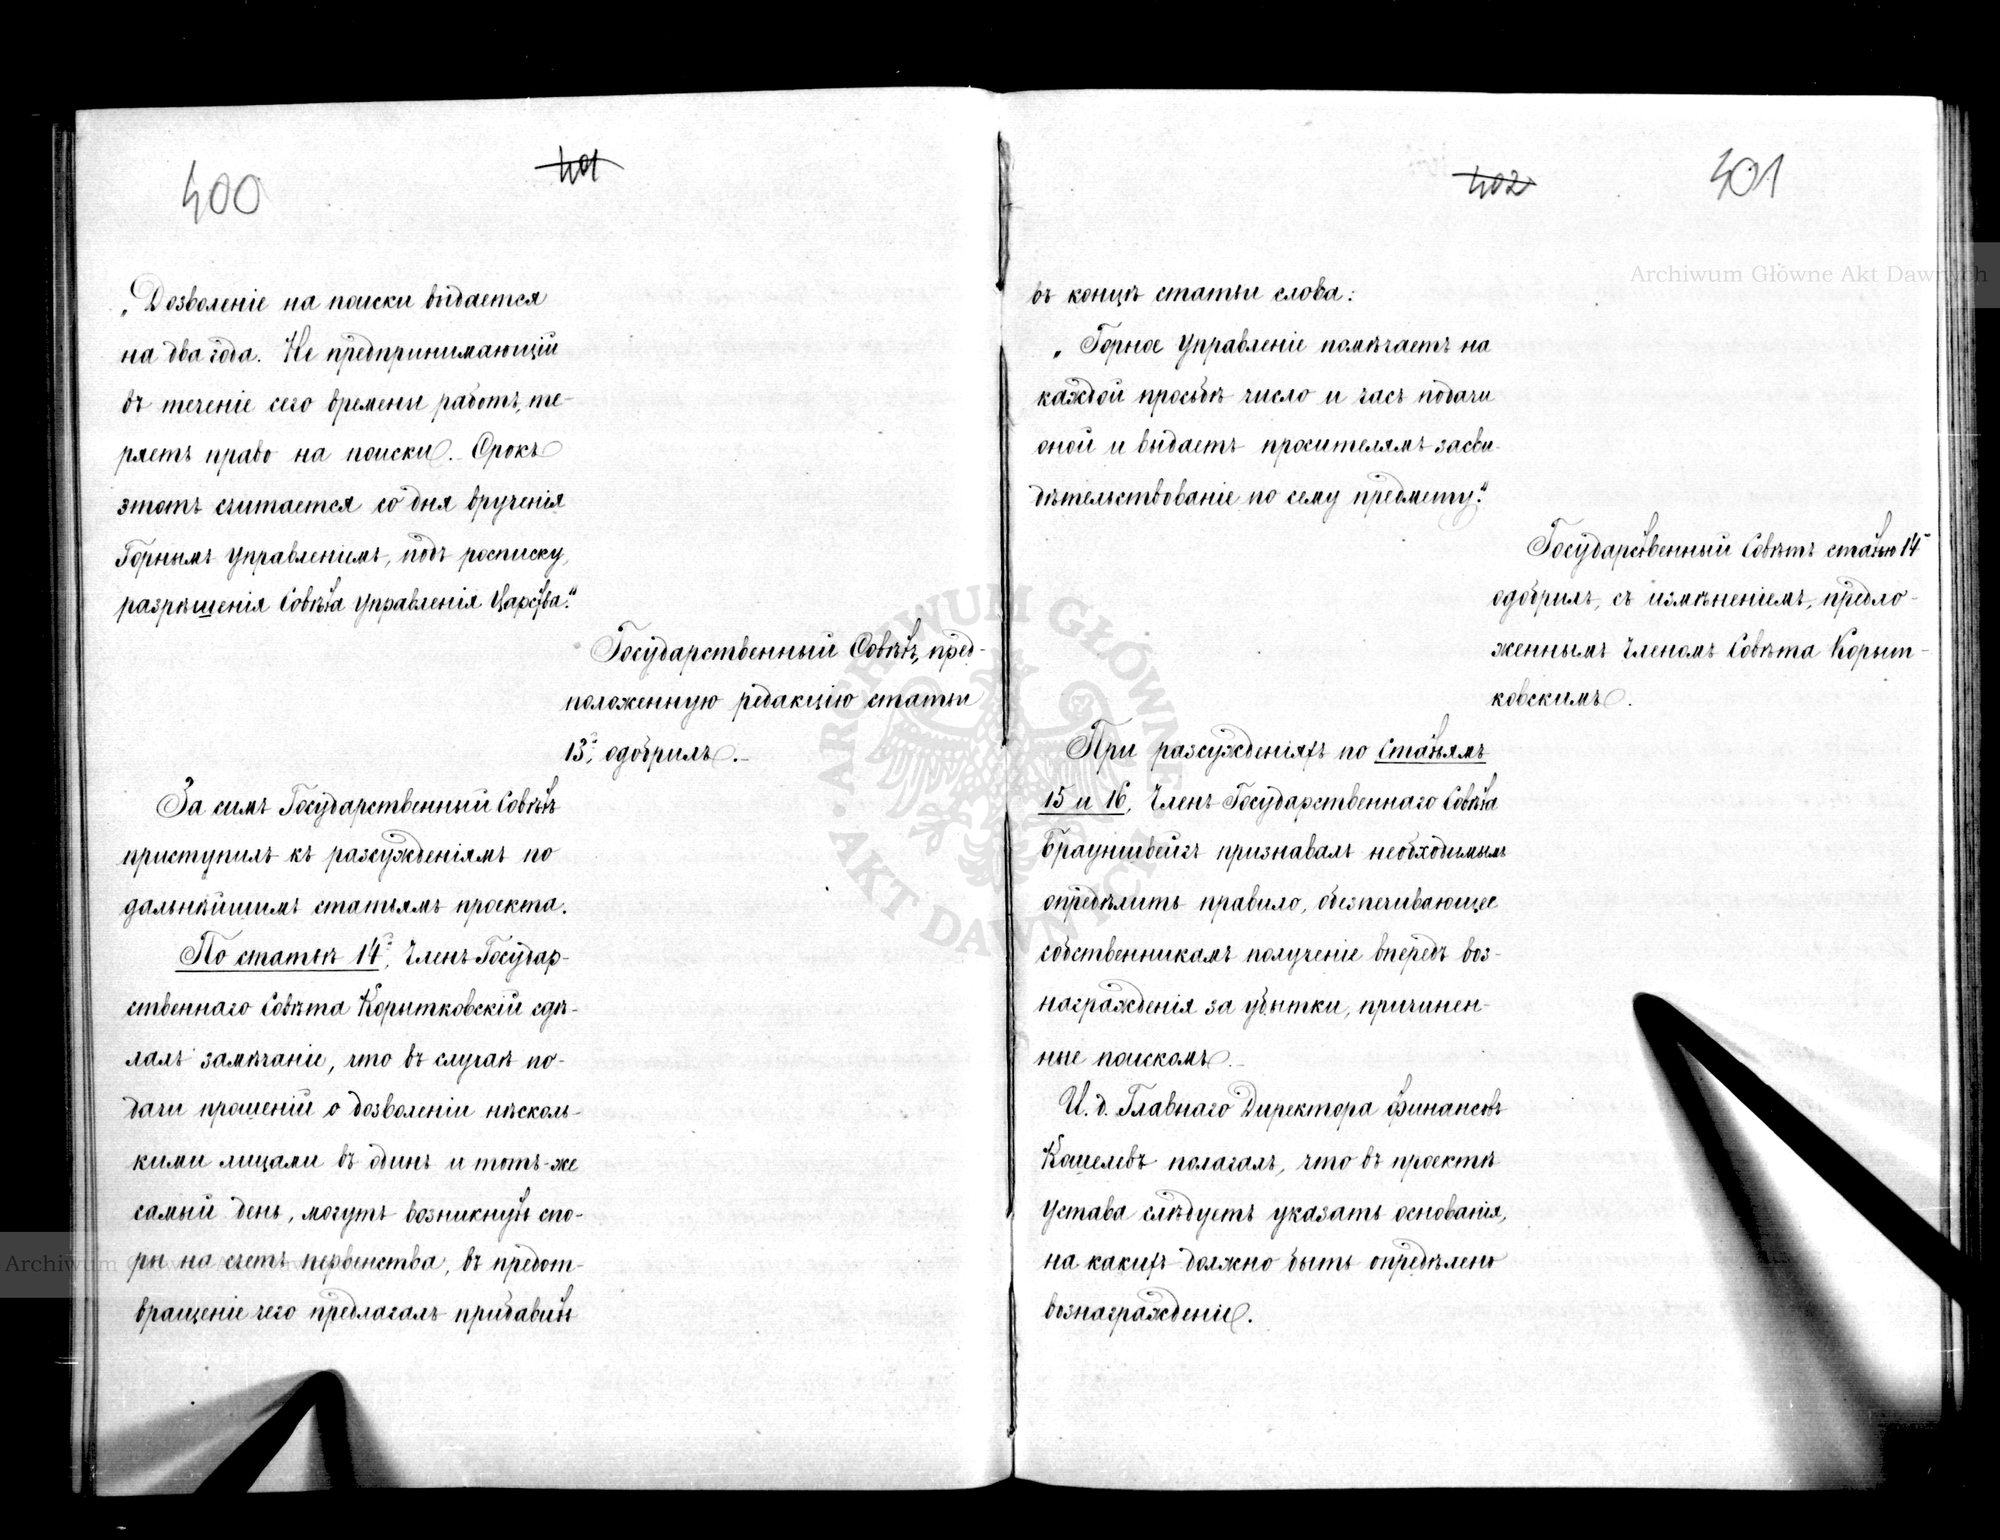 400
401
„Дозволеніе на поиски выдается
на два года. Не предпринимающій
въ теченіе сего времени работъ, те-
ряетъ право на поиски. Срокъ
этотъ считается со дня врученія
Горнымъ Управленіемъ, подъ росписку,
разрѣшенія Совѣта Управленія Царства."
Государственный Совѣтъ, пред-
положенную редакцію статьи
13й, одобрилъ.
За симъ Государственный Совѣтъ
приступилъ къ разсужденіямъ по
дальнѣйшимъ статьямъ проекта.
По статьѣ 14й, Членъ Государ-
ственнаго Совѣта Корытковскій сдѣ-
лалъ замѣчаніе, что въ случаѣ по-
дачи прошеній о дозволеніи нѣсколь-
кими лицами въ одинъ и тотъ-же
самый день, могутъ возникнуть спо-
ры на счетъ первенства, въ предот-
вращеніе чего предлагалъ прибавить
402
401
въ концѣ статьи слова:
„Горное Управленіе помѣчаетъ на
каждой просьбѣ число и часъ подачи
оной и выдаетъ просителямъ засви-
дѣтельствованіе по сему предмету."
Государственный Совѣтъ статью 14ю
одобрилъ, съ измѣненіемъ, предло-
женнымъ Членомъ Совѣта Корыт-
ковскимъ.
При разсужденіяхъ по статьямъ
15 и 16, Членъ Государственнаго Совѣта
Брауншвейгъ признавалъ необходимымъ
опредѣлить правило, обезпечивающее
собственникамъ полученіе впередъ воз-
награжденія за убытки, причинен-
ные поискомъ.
И. д. Главнаго Директора Финансовъ
Кошелевъ полагалъ, что въ проектѣ
Устава слѣдуетъ указать основанія,
на какихъ должно быть опредѣлено
вознагражденіе.
Archiwum Główne Akt Dawnych
ARCHIWUM GŁÓWNE AKT DAWNYCH